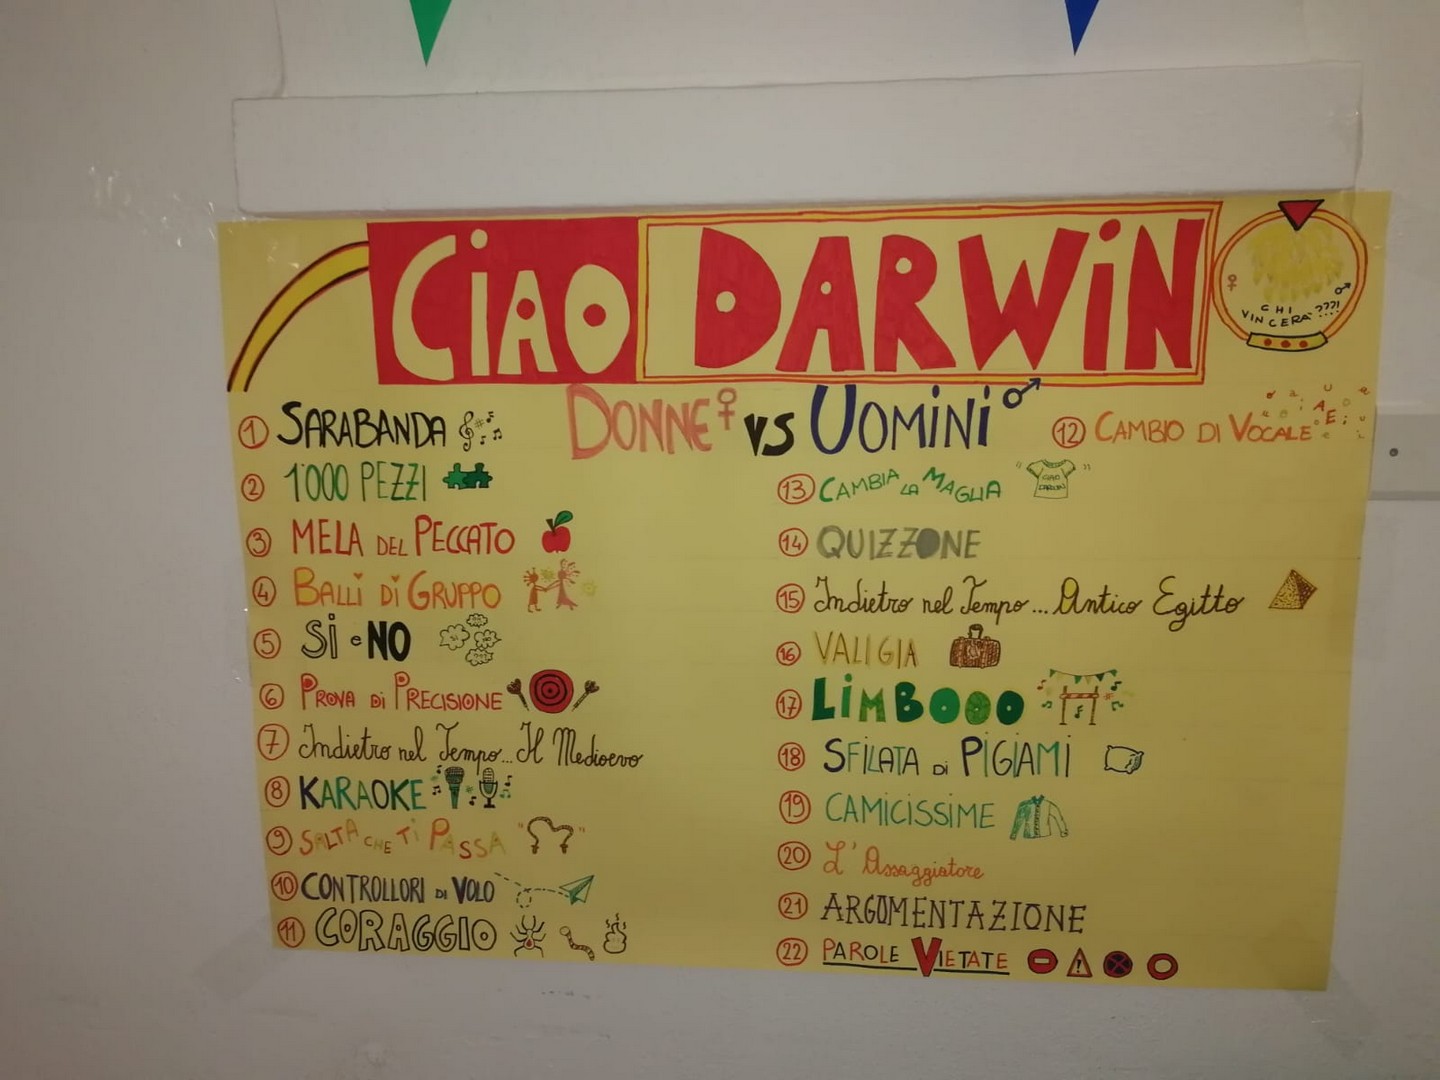 CiAO DARWiN
CHI
VINCERÀ ???!
DONNE vs UOMiNi
1 SARABANDA
2 1000 PEZZI
3 MELA DEL PECCATO
4 BALLi Di GRUPPO
5 Si e NO
6 PROVA Di PRECISIONE
7 Indietro nel Tempo... Il Medioevo
8 KARAOKE
9 SALTA CHE Ti PASSA
10 CONTROLLORI Di VOLO
11 CORAGGIO
12 CAMBIO Di VOCALE
13 CAMBIA LA MAGLIA
CIAO
DARWIN
14 QUIZZONE
15 Indietro nel Tempo... Antico Egitto
16 VALIGIA
17 LiMBOOO
18 SFILATA Di PIGIAMI
19 CAMICISSIME
20 L'Assaggiatore
21 ARGOMENTAZIONE
22 PAROLE VIETATE